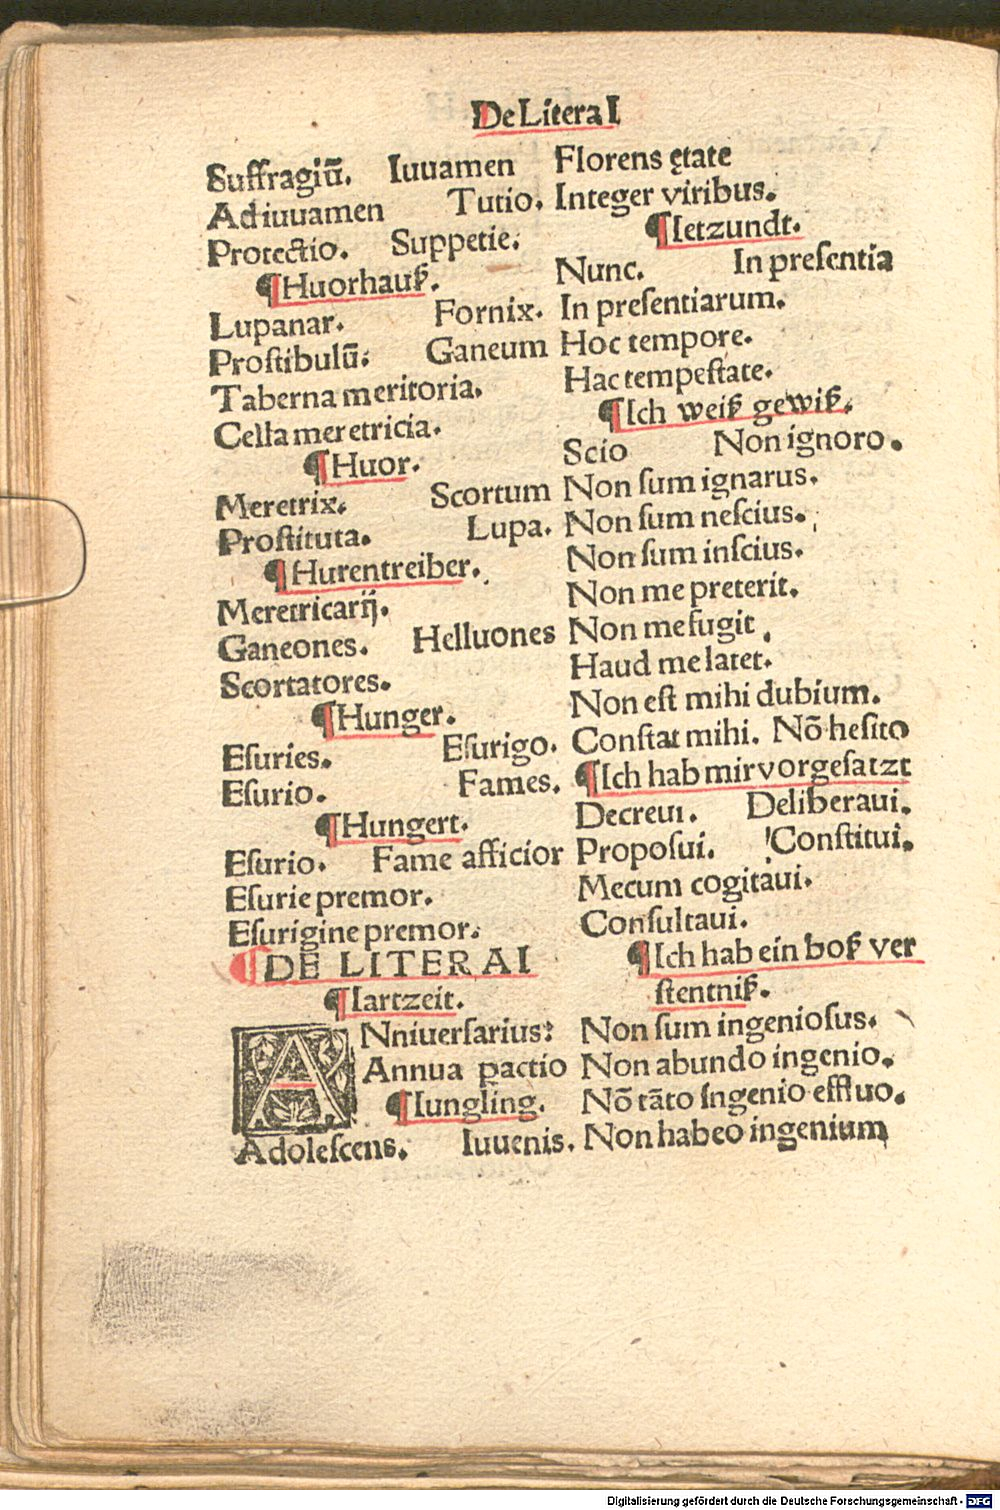 De Litera I
Suffragiū. Iuuamen
Adiuuamen Tutio.
Protectio. Suppetie.
¶Huorhauß.
Lupanar. Fornix.
Prostibulū. Ganeum
Taberna meritoria.
Cella meretricia.
¶Huor.
Meretrix. Scortum
Prostituta. Lupa.
¶Hurentreiber.
Meretricarij.
Ganeones. Helluones
Scortatores.
¶Hunger.
Esuries. Esurigo.
Esurio. Fames.
¶Hungert.
Esurio. Fame afficior
Esurie premor.
Esurigine premor.
¶DE LITERA I
¶Iartzeit.
ANniuersarius:
Annua pactio
¶Iungling.
Adolescens. Iuuenis.
Florens ętate
Integer viribus.
¶Ietzundt.
Nunc. In presentia
In presentiarum.
Hoc tempore.
Hac tempestate.
¶Ich weiß gewiß.
Scio Non ignoro.
Non sum ignarus.
Non sum nescius.
Non sum inscius.
Non me preterit.
Non me fugit.
Haud me latet.
Non est mihi dubium.
Constat mihi. Nō hesito
¶Ich hab mir vorgesatzt
Decreui. Deliberaui.
Proposui. Constitui.
Mecum cogitaui.
Consultaui.
¶Ich hab ein boß ver
stentniß.
Non sum ingeniosus.
Non abundo ingenio.
Nō tāto ingenio effluo.
Non habeo ingenium
Digitalisierung gefördert durch die Deutsche Forschungsgemeinschaft - DFG